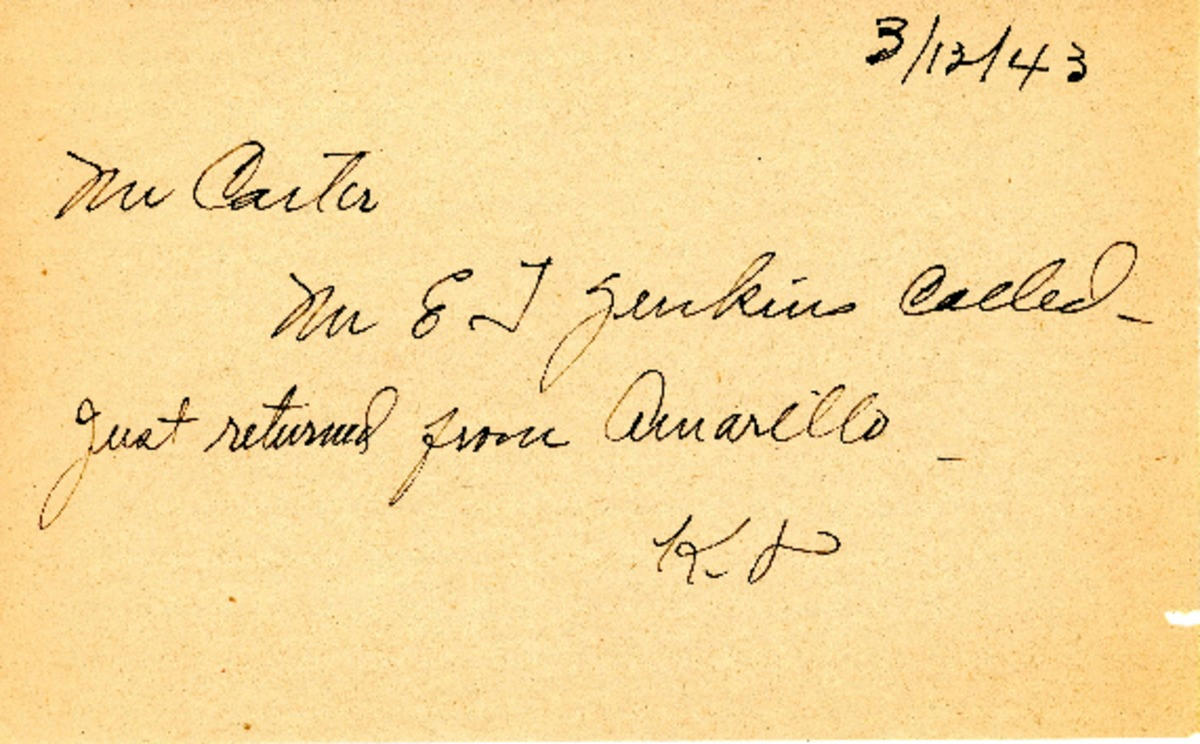 3/13/43
Mr Carter
Mr E T Jenkins called -
Just returned from Amarillo -
K